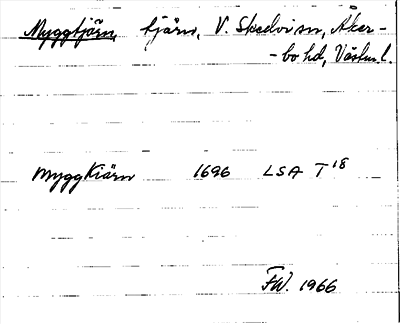 Myggtjärn, tjärn, V. Skedvi sn, Åker-
-bo hd, Västm.l.
Myggkiärn 1696 LSA T 18
FW. 1966